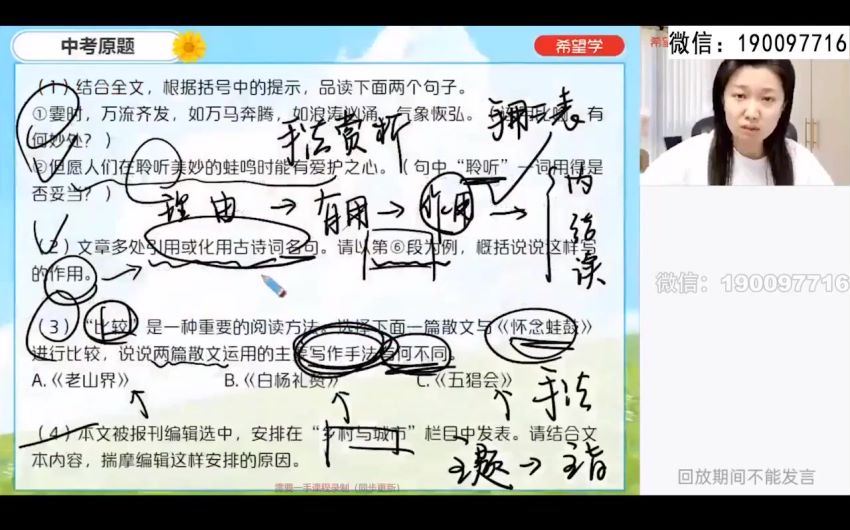 中考原题
希望学
微信：190097716
（1）结合全文，根据括号中的提示，品读下面两个句子。
①霎时，万流齐发，如万马奔腾，如浪涛汹涌，气象恢弘。
有
何妙处？）
手法赏析
②但愿人们在聆听美妙的蛙鸣时能有爱护之心。（句中“聆听”一词用得是
否妥当？）
理由 → 有用 → 作用 →
内
结
读
（2）文章多处引用或化用古诗词名句。请以第⑥段为例，概括说说这样写
的作用。
微信：190097716
（3）“比较”是一种重要的阅读方法。选择下面一篇散文与《怀念蛙鼓》
进行比较，说说两篇散文运用的主要写作手法有何不同。
A.《老山界》
B.《白杨礼赞》
C.《五猖会》
手法
（4）本文被报刊编辑选中，安排在“乡村与城市”栏目中发表。请结合文
本内容，揣摩编辑这样安排的原因。
主题 → 主旨
回放期间不能发言
需要一手课程录制（同步更新）